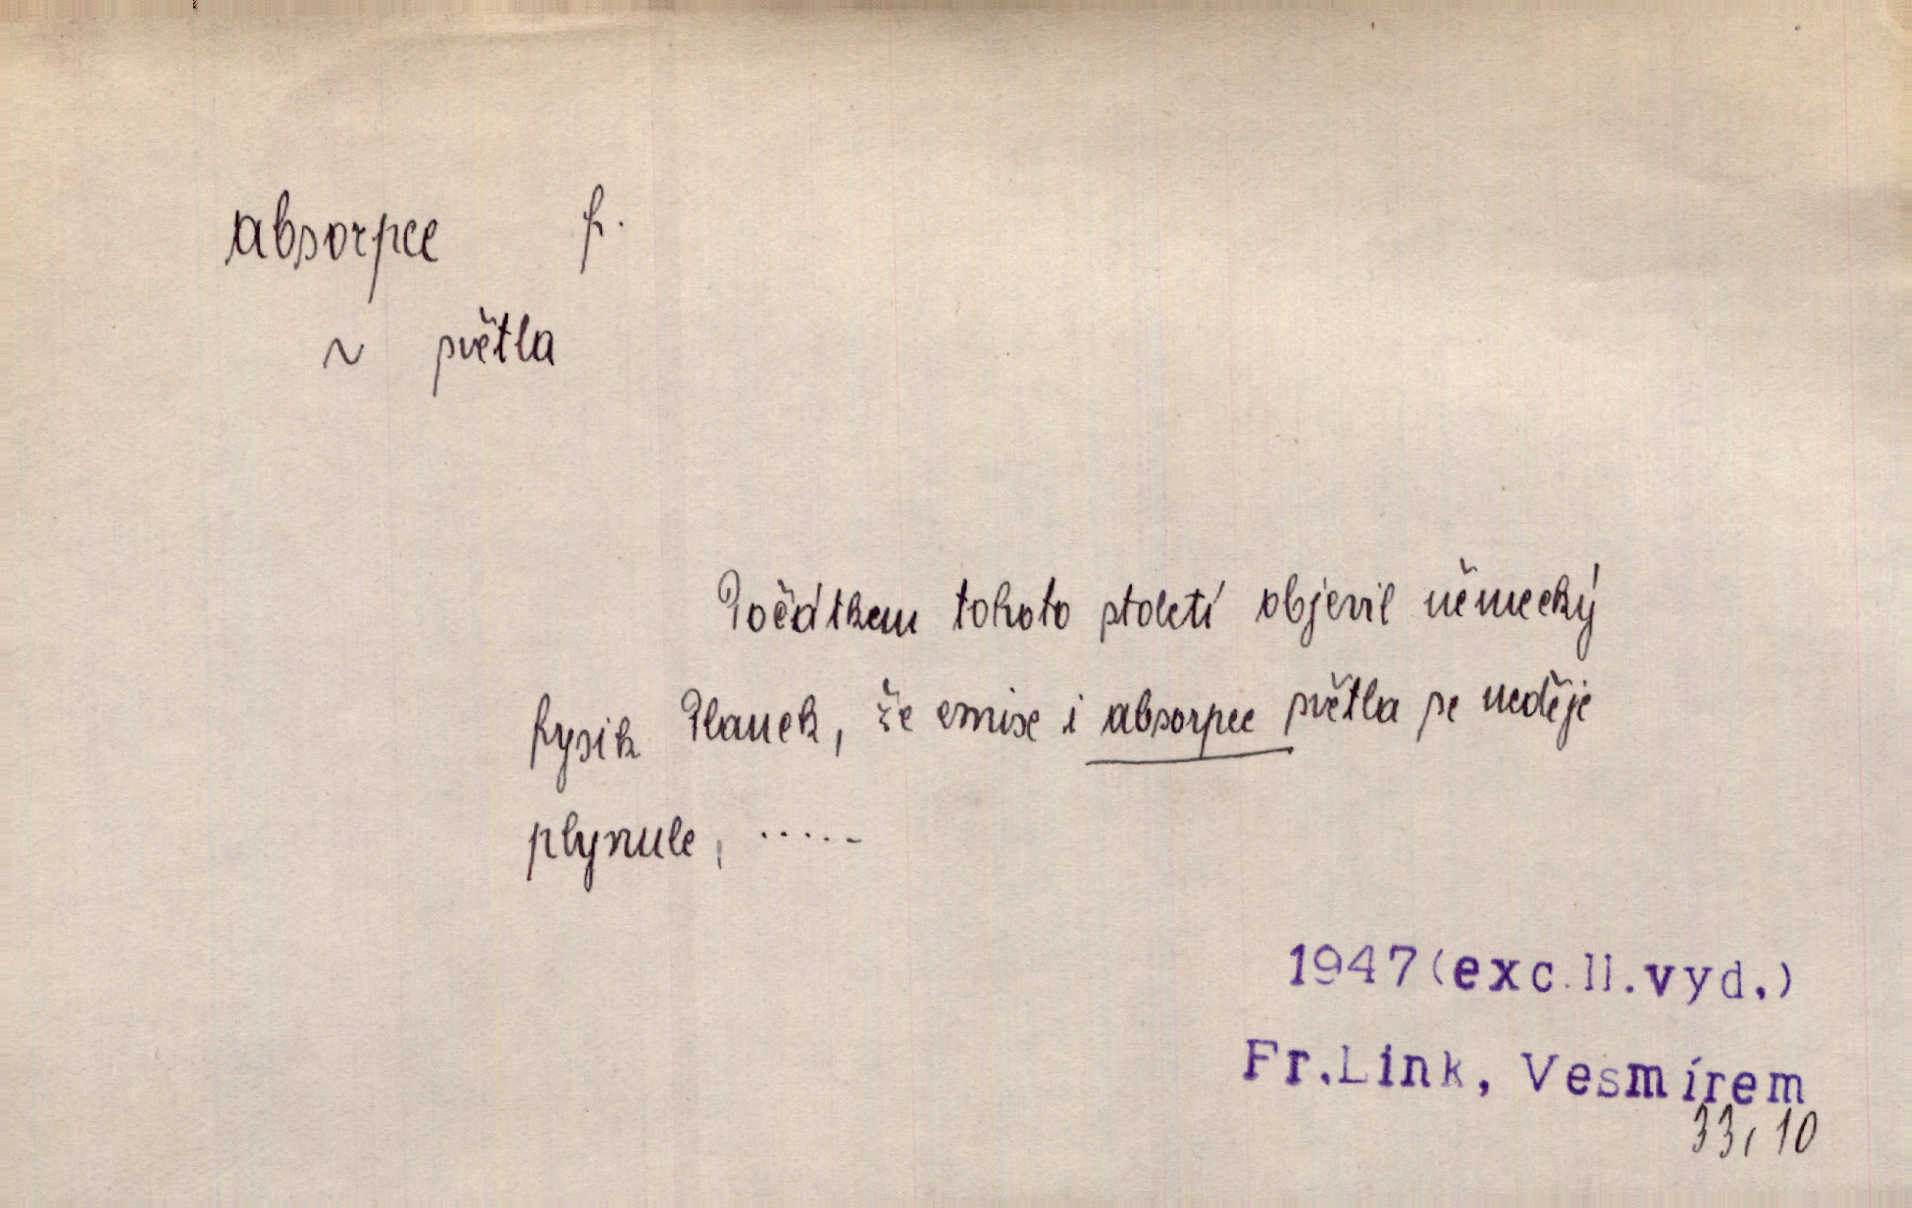 absorpce f.
~ světla
Počátkem tohoto století objevil německý
fysik Planck, že emise i absorpce světla se neděje
plynule, .....
1947(exc.II.vyd.)
Fr.Link, Vesmírem
33,10